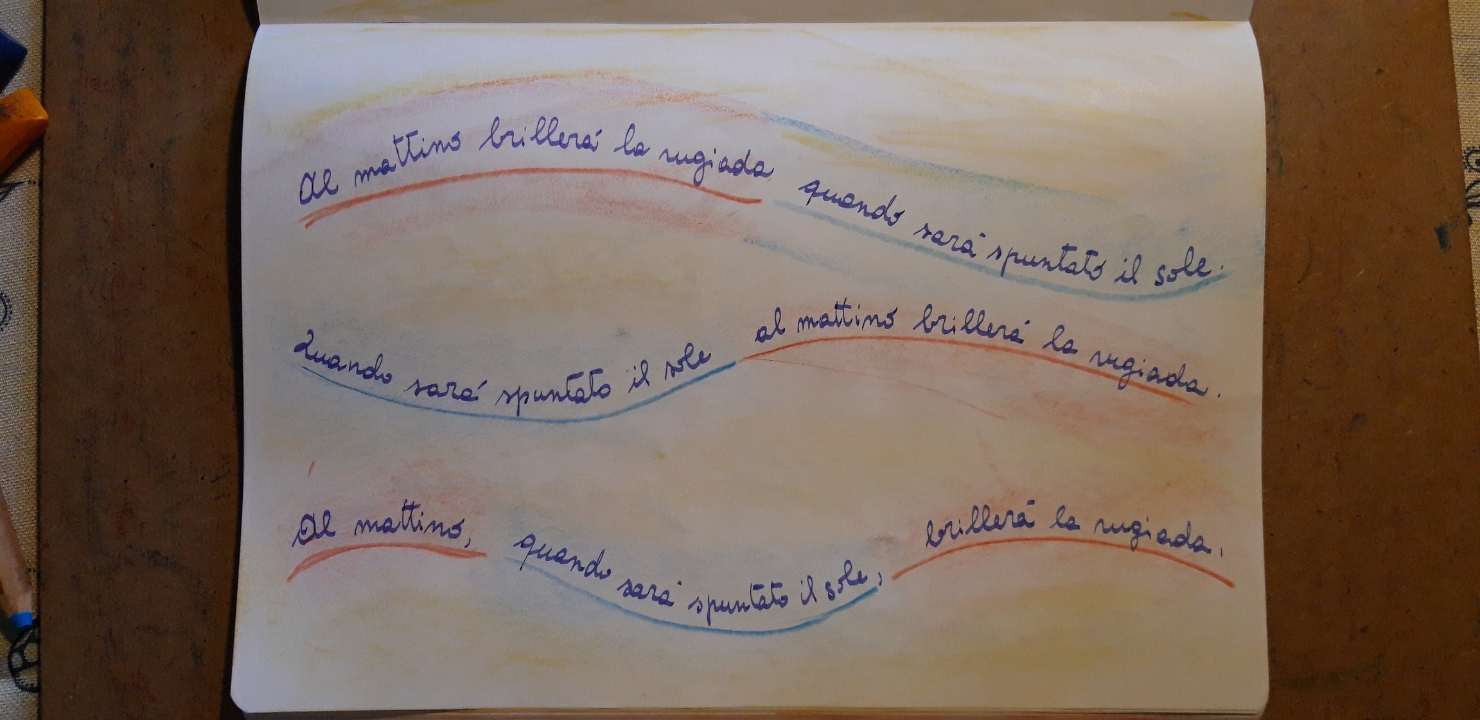 Al mattino brillerá la rugiada quando sará spuntato il sole.
Quando sará spuntato il sole al mattino brillerá la rugiada.
Al mattino, quando sará spuntato il sole, brillerá la rugiada.